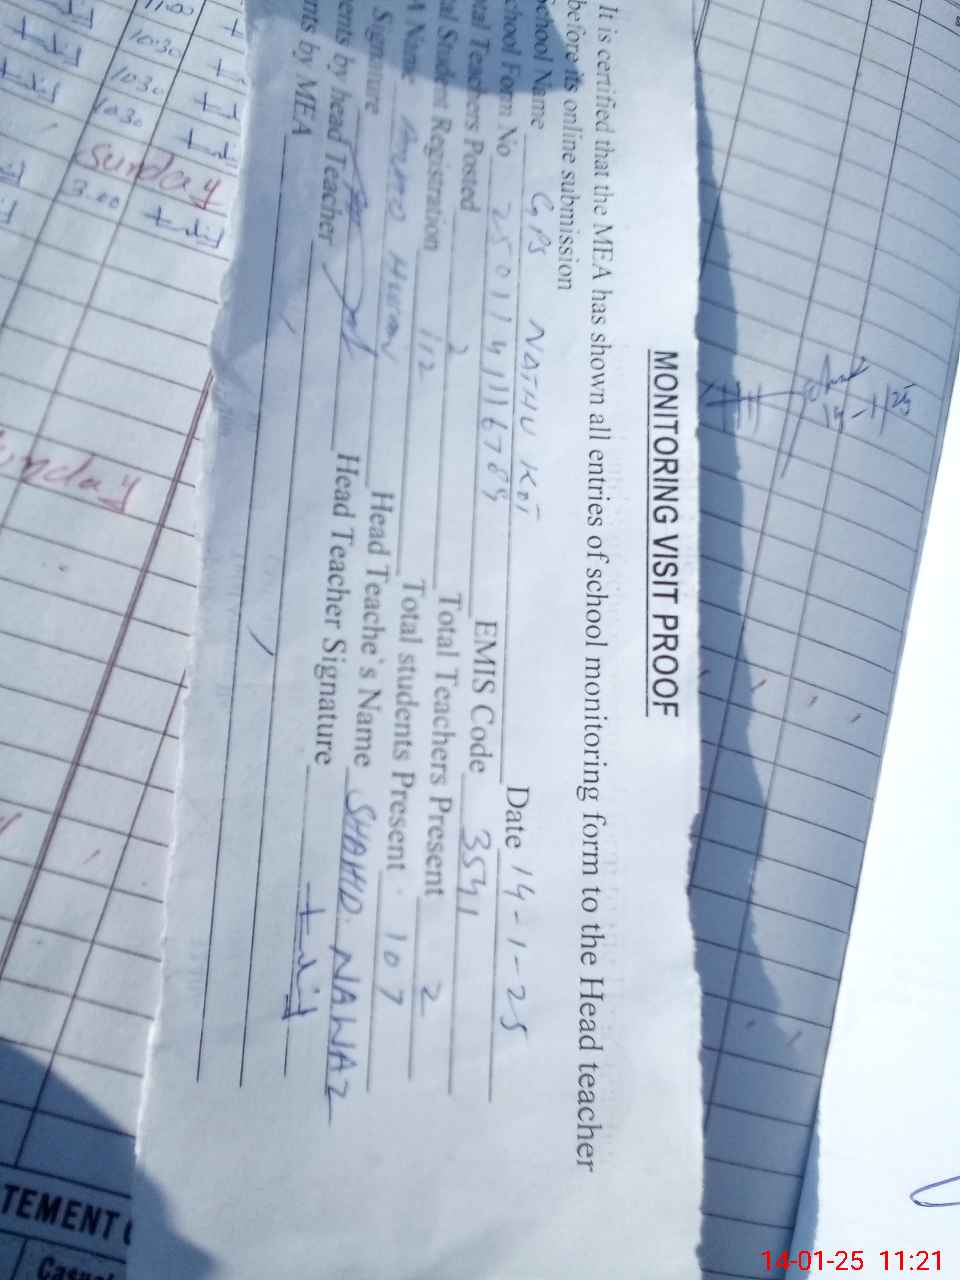 MONITORING VISIT PROOF
It is certified that the MEA has shown all entries of school monitoring form to the Head teacher
before its online submission
School Name GPS NATHU KOT Date 14-1-25
School Form No EMIS Code 3541
otal Teachers Posted 2 Total Teachers Present 2
al Student Registration 112 Total students Present 107
A Name Head Teache's Name SHAHID NAWAZ
Signature Head Teacher Signature
ents by head Teacher
nts by MEA
1030
1030
1030
Sunday
3.00
Sunday
TEMENT
Casual
14-01-25 11:21